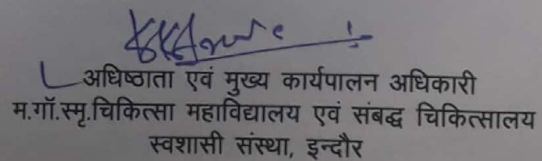 अधिष्ठाता एवं मुख्य कार्यपालन अधिकारी
म.गॉ.स्मृ.चिकित्सा महाविद्यालय एवं संबद्ध चिकित्सालय
स्वशासी संस्था, इन्दौर